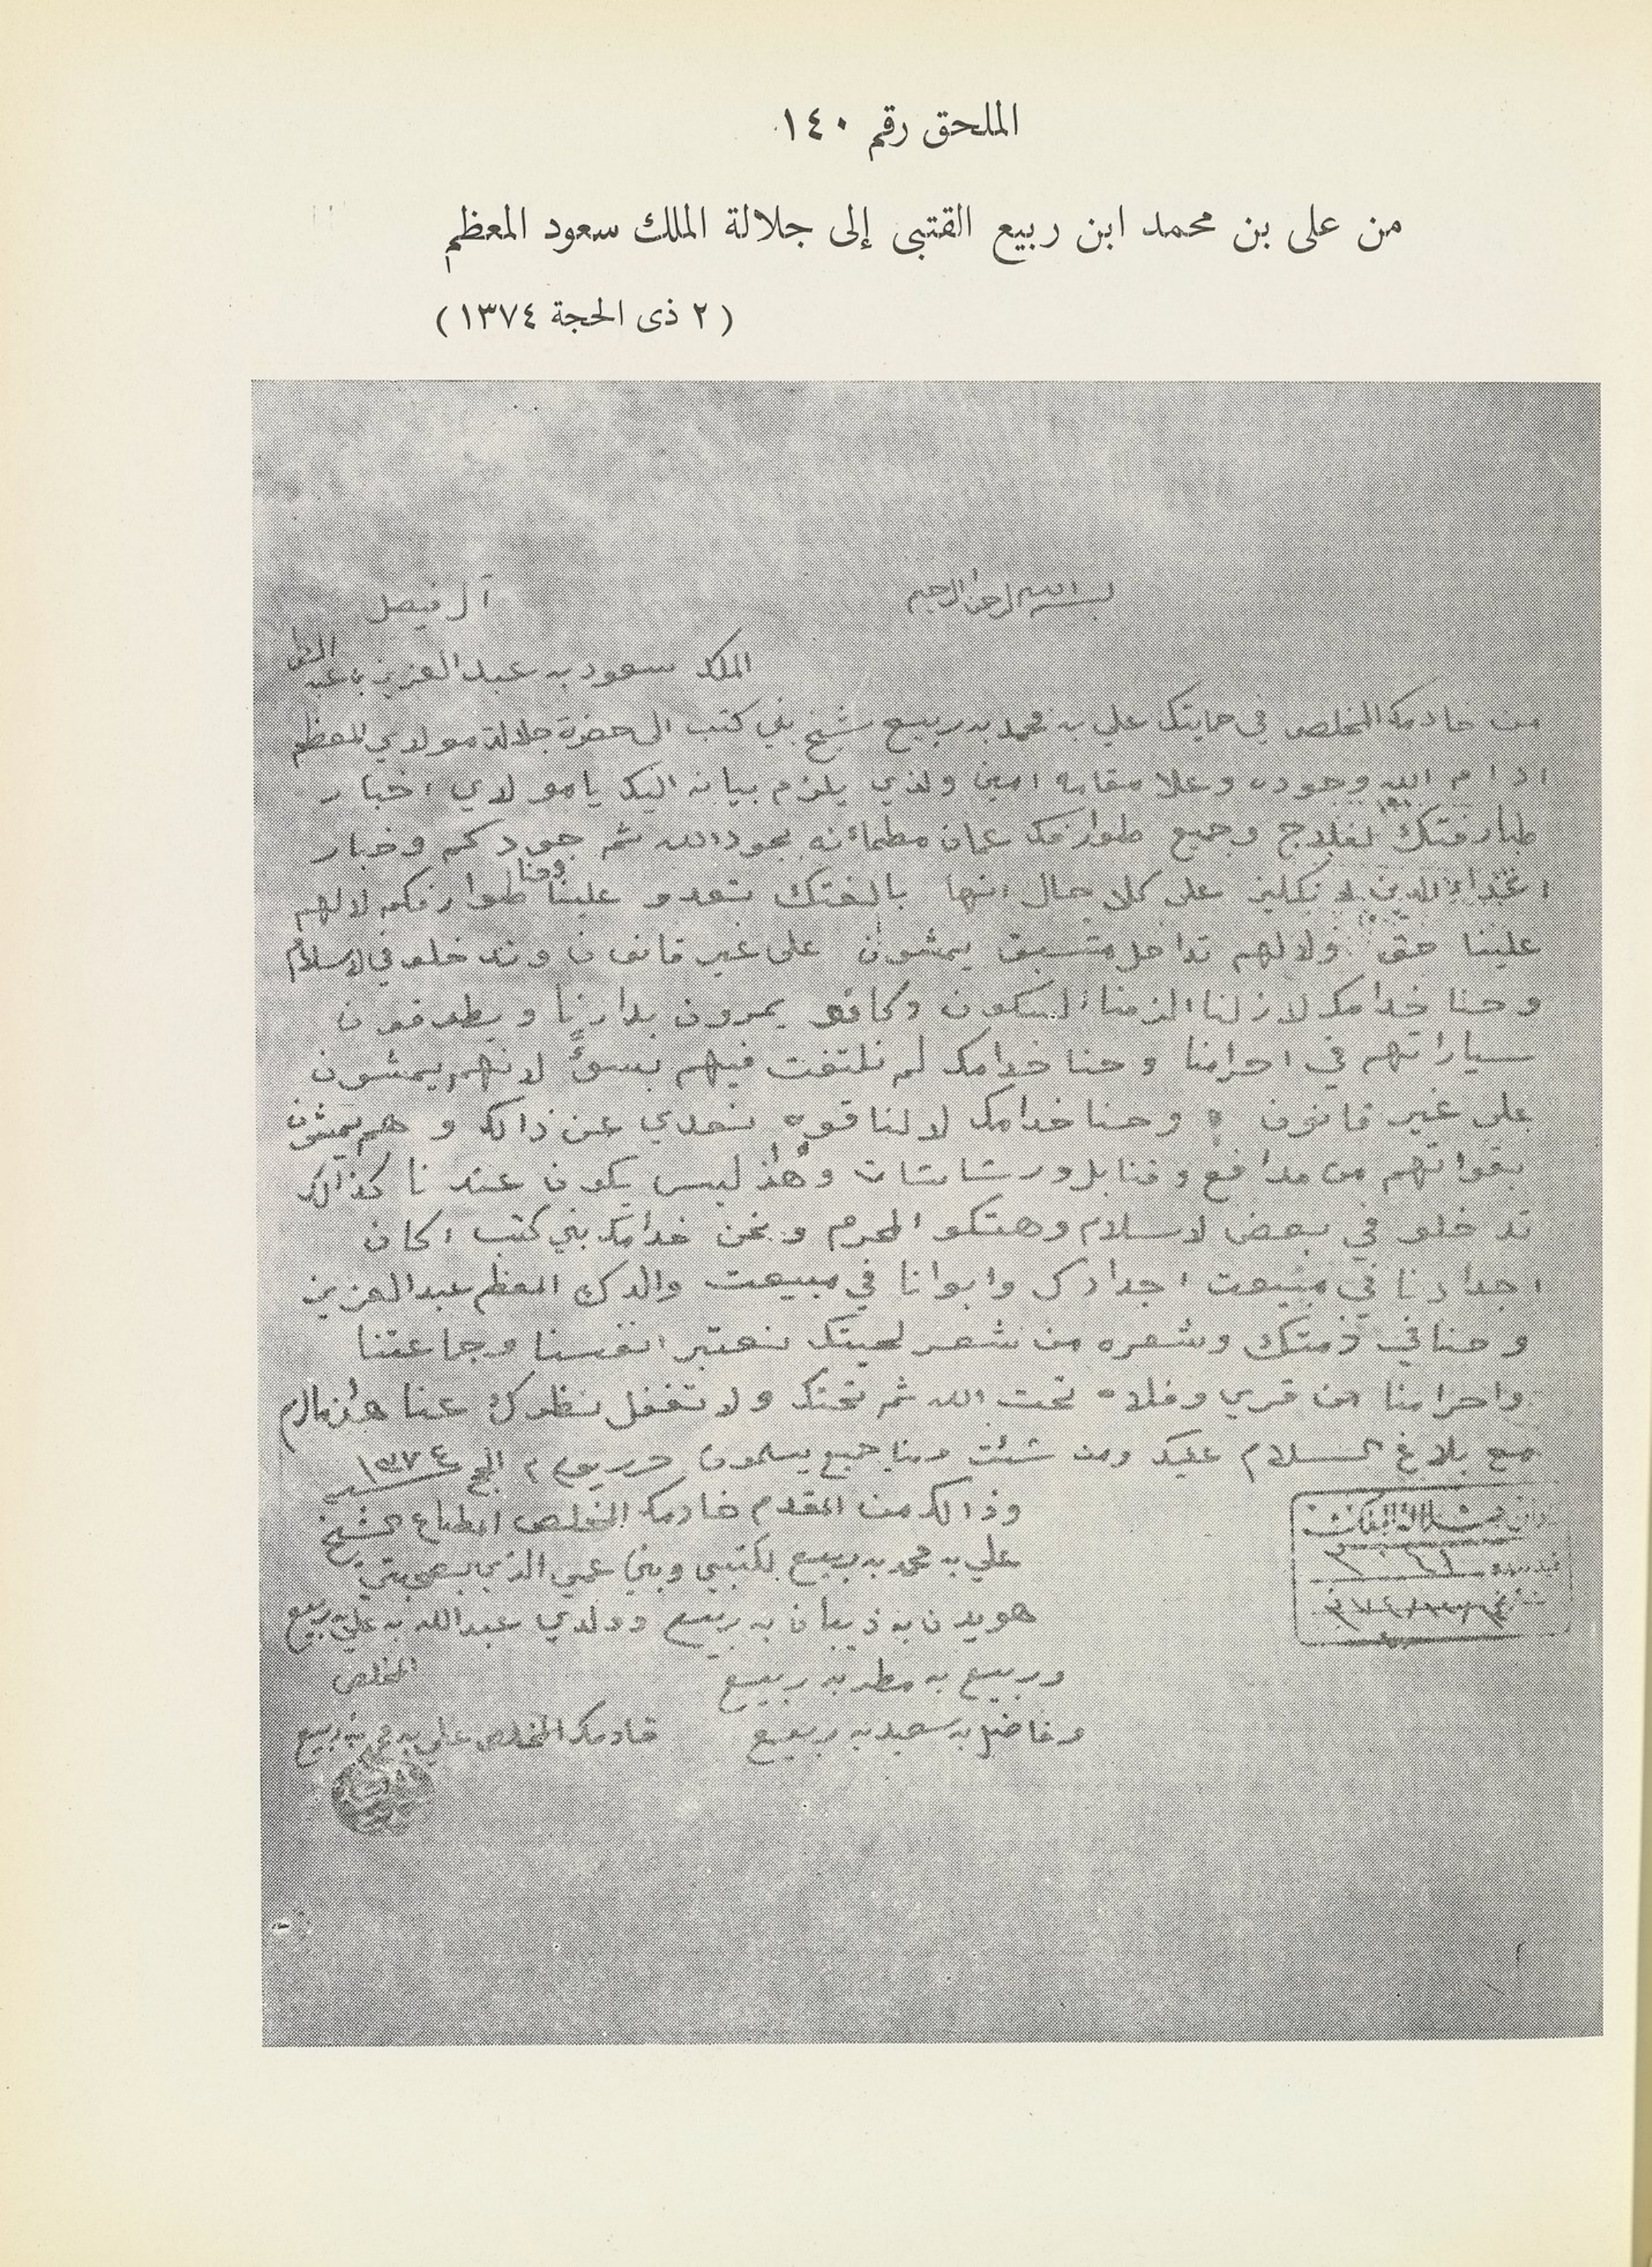 الملحق رقم ١٤٠
من على بن محمد ابن ربيع القتبى إلى جلالة الملك سعود المعظم
(٢ ذى الحجة ١٣٧٤)
بسم الله الرحمن الرحيم
آل فيصل
الملك سعود به عبد العزيز بن عبد
من خادمك المخلص في حمايتك علي به محمد به ربيع شيخ بني كتب الى حضرة جلالة مولاي المعظم
ادام الله وجوده وعلا مقامه امين ولذي يلزم بيانه اليك يا مولاي اخبار
طبارفتك لفلاج وجميع طوارفك عمان مطمائنه بجود الله ثم جودكم وخبار
على كلا حال انها بالغتك تعدو علينا وحنا طوارفكم لا لهم
علينا حق ولا لهم تداخل متسبق يمشون على غير قانون وتدخلو في لاسلام
وحنا خدامك لازلنا الزمنا السكون وكافو يمرون بدارنا ويطوفون
سياراتهم في احرامنا وحنا خدامك لم نلتفت فيهم بسوٍ لانهم يمشون
على غير قانون وحنا خدامك لا لنا قوه نعدي عن ذالك وهم يمشون
بقواتهم من مدافع وقنابل ورشاشات وهاذ ليس يكون عندنا كذالك
تدخلو في بعض لاسلام وهتكو المحرم ونحن خدامك بني كتب اكان
اجدادنا في مبيعت اجدادك وابوانا في مبيعت والدك المعظم عبد العزيز
وحنا في ذمتك وشعره من شعر لحيتك نعتبر انفسنا وجماعتنا
واحرامنا من قري وفلاه تحت الله ثم تحتك ولا تغفل نظرك عنا هاذ مالزم
مع بلاغ السلام عليك ومن شئت ومنا جميع يسلمون حرر يوم ٢ الحج ١٣٧٤
وذالك من المقدم خادمك المخلص المطاع الشيخ
علي به محمد به ربيع لكتبي وبني عمي الذي
هويدن به ذيبان به ربيع وولدي عبدالله به علي به ربيع
وربيع به مطر به ربيع
المخلص
وفاضل به سعيد به ربيع
خادمك المخلص علي به محمد به ربيع